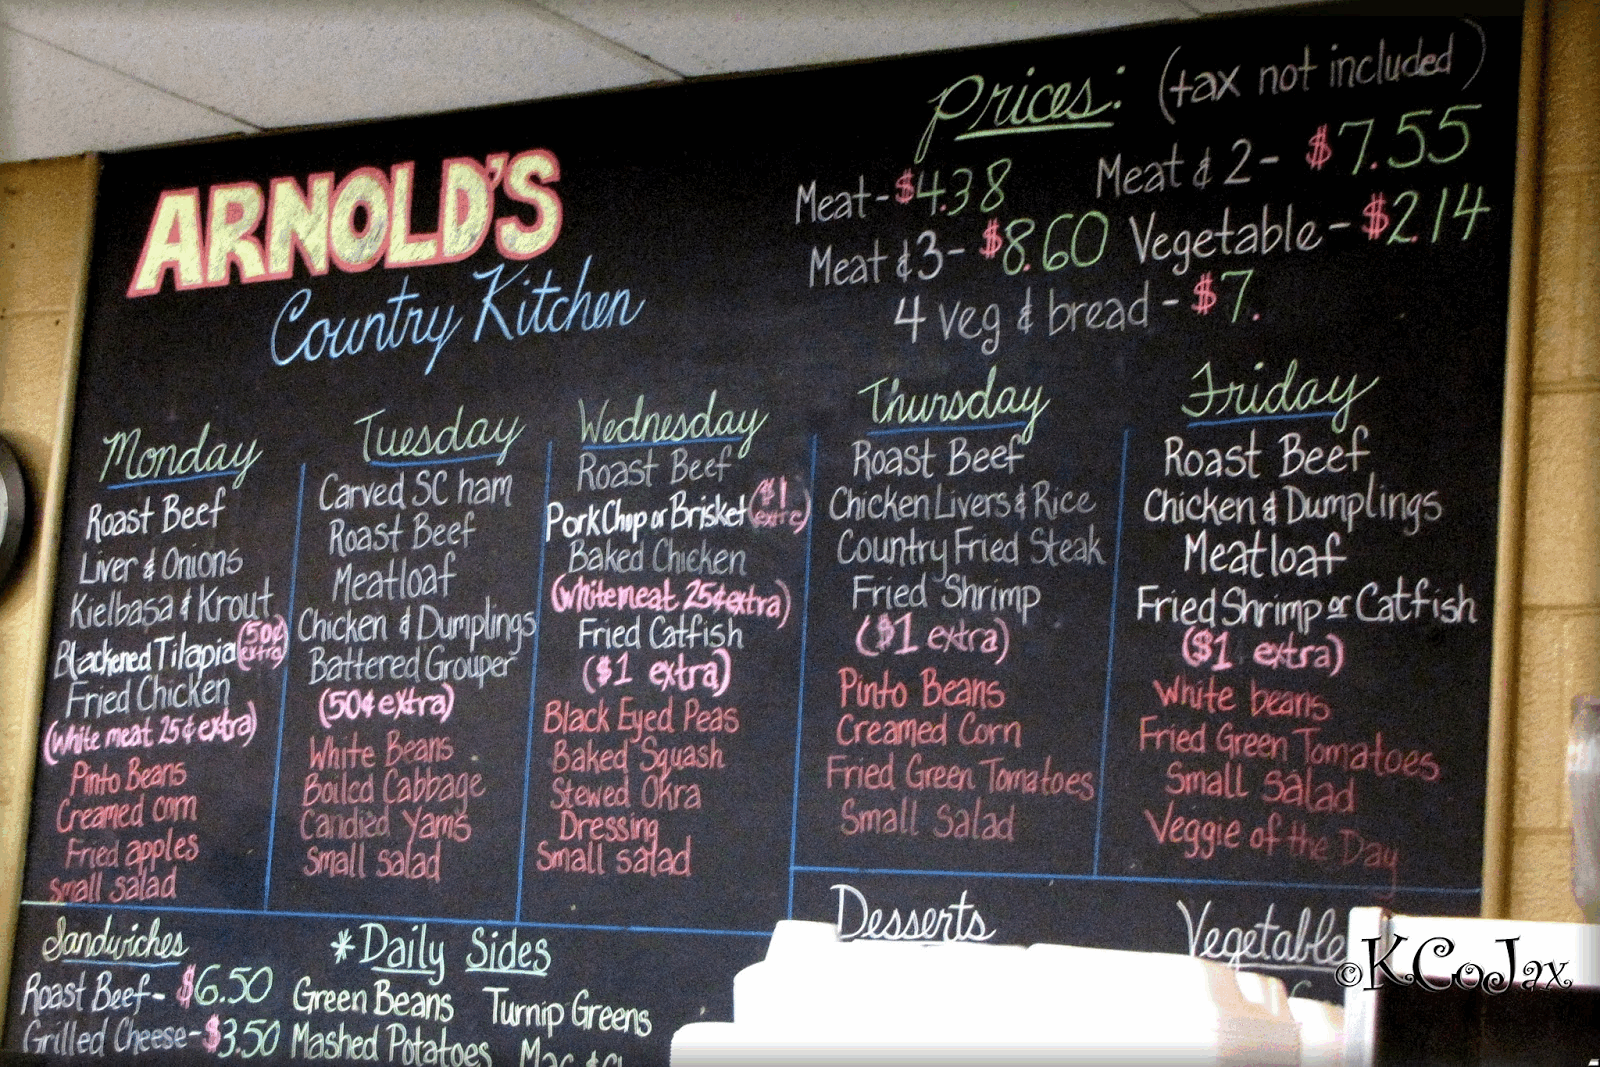 ARNOLD'S
Country Kitchen
Prices: (tax not included)
Meat - $4.38
Meat & 2 - $7.55
Meat & 3 - $8.60
Vegetable - $2.14
4 veg & bread - $7.
Monday
Roast Beef
Liver & Onions
Kielbasa & Krout
Blackened Tilapia (50¢ extra)
Fried Chicken
(White meat 25¢ extra)
Pinto Beans
Creamed corn
Fried apples
Small salad
Tuesday
Carved SC ham
Roast Beef
Meatloaf
Chicken & Dumplings
Battered Grouper
(50¢ extra)
White Beans
Boiled Cabbage
Candied Yams
Small salad
Wednesday
Roast Beef
Pork Chop or Brisket ($1 extra)
Baked Chicken
(white meat 25¢ extra)
Fried Catfish
($1 extra)
Black Eyed Peas
Baked Squash
Stewed Okra
Dressing
Small salad
Thursday
Roast Beef
Chicken Livers & Rice
Country Fried Steak
Fried Shrimp
($1 extra)
Pinto Beans
Creamed Corn
Fried Green Tomatoes
Small Salad
Friday
Roast Beef
Chicken & Dumplings
Meatloaf
Fried Shrimp or Catfish
($1 extra)
White beans
Fried Green Tomatoes
Small Salad
Veggie of the Day
Sandwiches
Roast Beef - $6.50
Grilled Cheese - $3.50
*Daily Sides
Green Beans
Turnip Greens
Mashed Potatoes
Mac &
Desserts
Vegetable
©KCoJax